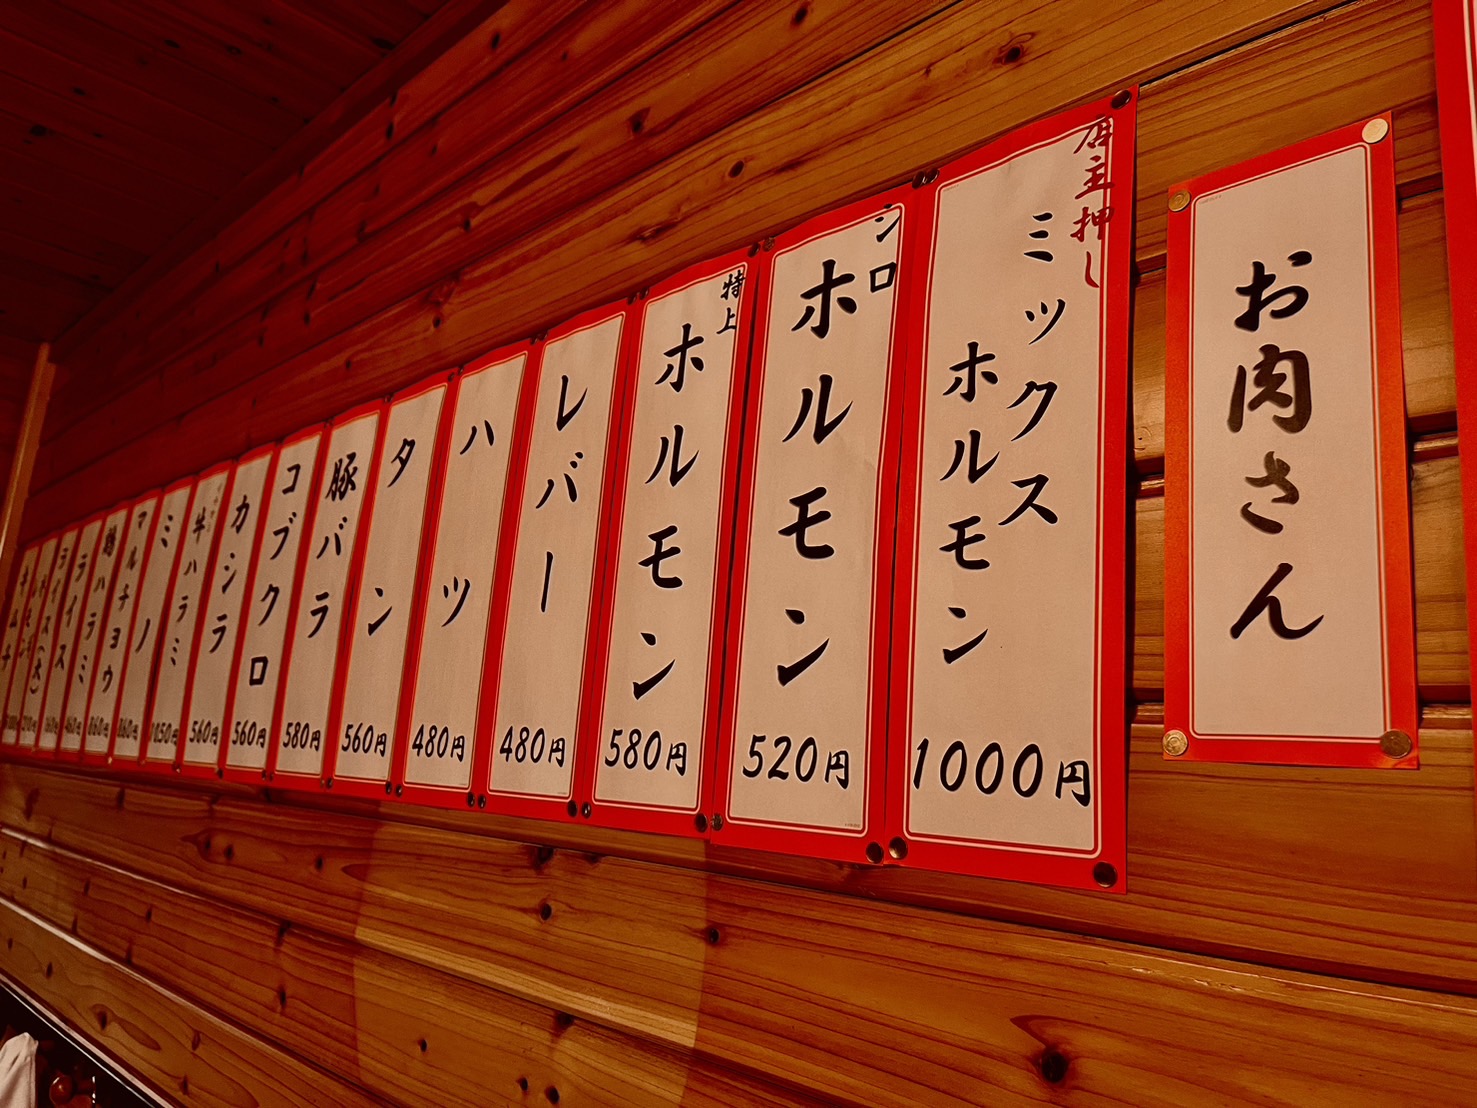 お肉さん
店主押し
ミックス
ホルモン
1000円
シロ
ホルモン
520円
特上
ホルモン
580円
レバー
480円
ハツ
480円
タン
560円
豚バラ
580円
コブクロ
560円
カシラ
560円
牛ハラミ
1050円
ミノ
860円
マルチョウ
860円
鶏ハラミ
460円
ライス
ライス(大)
キムチ